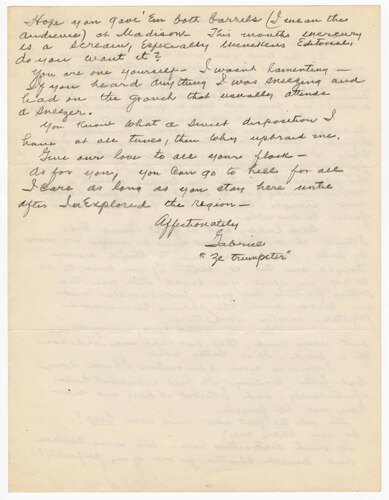 Hope you gave 'Em both barrels (I mean the
audience) at Madison. This months mercury
is a scream, Especially Menckens Editorial,
do you want it?
You are one yourself – I wasn't lamenting –
If you heard anything I was sneezing and
had on the grouch that usually attends
a sneezer.
You know what a sweet disposition I
have at all times, then why upbraid me.
Give our love to all your flock –
As for you, you can go to hell for all
I care as long as you stay here until
after I explored the region –
Affectionately
Gabriel
"Ze trumpeter"